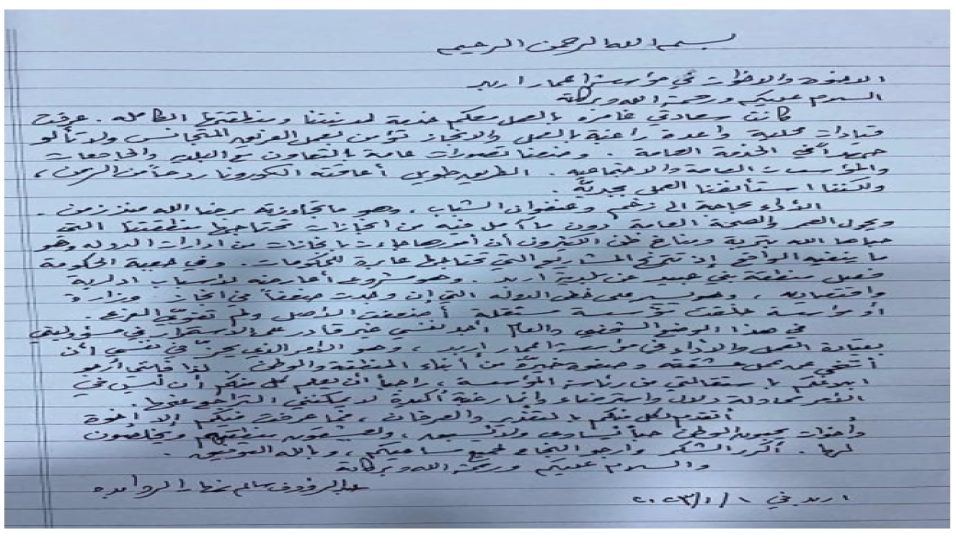 بسم الله الرحمن الرحيم
الاخوة والاخوات في مؤسسة اعمار اربد
السلام عليكم ورحمة الله وبركاته
كانت سعادتي غامرة بالعمل معكم خدمة لمدينتنا ومنطقتها الكاملة. عرفت
قيادات محلية واعدة راغبة بالعمل والانجاز تؤمن بعمل الفريق المتجانس ولا تألو
جهداً في الخدمة العامة. وضعنا تصورات عامة بالتعاون مع البلدية والجامعات
والمؤسسات العامة والاجتماعية. الطريق طويل أعاقته الكورونا ردحاً من الزمن،
ولكننا استأنفنا العمل بجدية.
الأداء بحاجة الى زخم وعنفوان الشباب، وهو ما تجاوزته بحمد الله منذ زمن.
ويحول العمر والصحة العامة دون ما آمل فيه من انجازات تحتاجها منطقتنا التي
حباها الله بتربة ومناخ ظن الكثيرون أن أمورها جاءت بانجازات من ادارات الدولة وهو
ما ينفيه الواقع إذ تتزاحم المشاريع التي تحتاجها عابرة للحكومات. وفي جعبة الحكومة
فصل منطقة عن بلدية اربد. وهو مشروع أعارضه لأسباب ادارية
واقتصادية، وهو يسير على خطى الدولة التي إن وجدت ضعفاً في انجاز وزارة
أو مؤسسة خلقت مؤسسة مستقلة أضعفت الأصل ولم تقوّي الفرع.
في هذا الوضع الشخصي والعام أجد نفسي غير قادر على الاستمرار في مسؤوليتي
بقيادة العمل والأداء في مؤسسة اعمار اربد، وهو الأمر الذي يحزّ في نفسي أن
أتنحى عن عمل عشقته وصفوة خيّرة من أبناء المنطقة والوطن. لذا فإنني أرجو
ابلاغكم باستقالتي من رئاسة المؤسسة، راجياً أن يعلم كل منكم أن ليس في
الأمر محاولة دلال واسترضاء وإنما رغبة أكيدة لا يمكنني التراجع عنها.
أتقدم لكل منكم بالتقدير والعرفان، فما عرفت منكم إلا اخوة
وأخوات يحبون الوطن حباً لا يساوى ولا يُشبه، ويعشقون منطقتهم ويخلصون
لها. أكرر الشكر وارجو النجاح لجميع مساعيكم، وبالله التوفيق.
والسلام عليكم ورحمة الله وبركاته
عبدالرؤوف سالم نهار الروابده
اربد في ١/١/٢٠٢٣